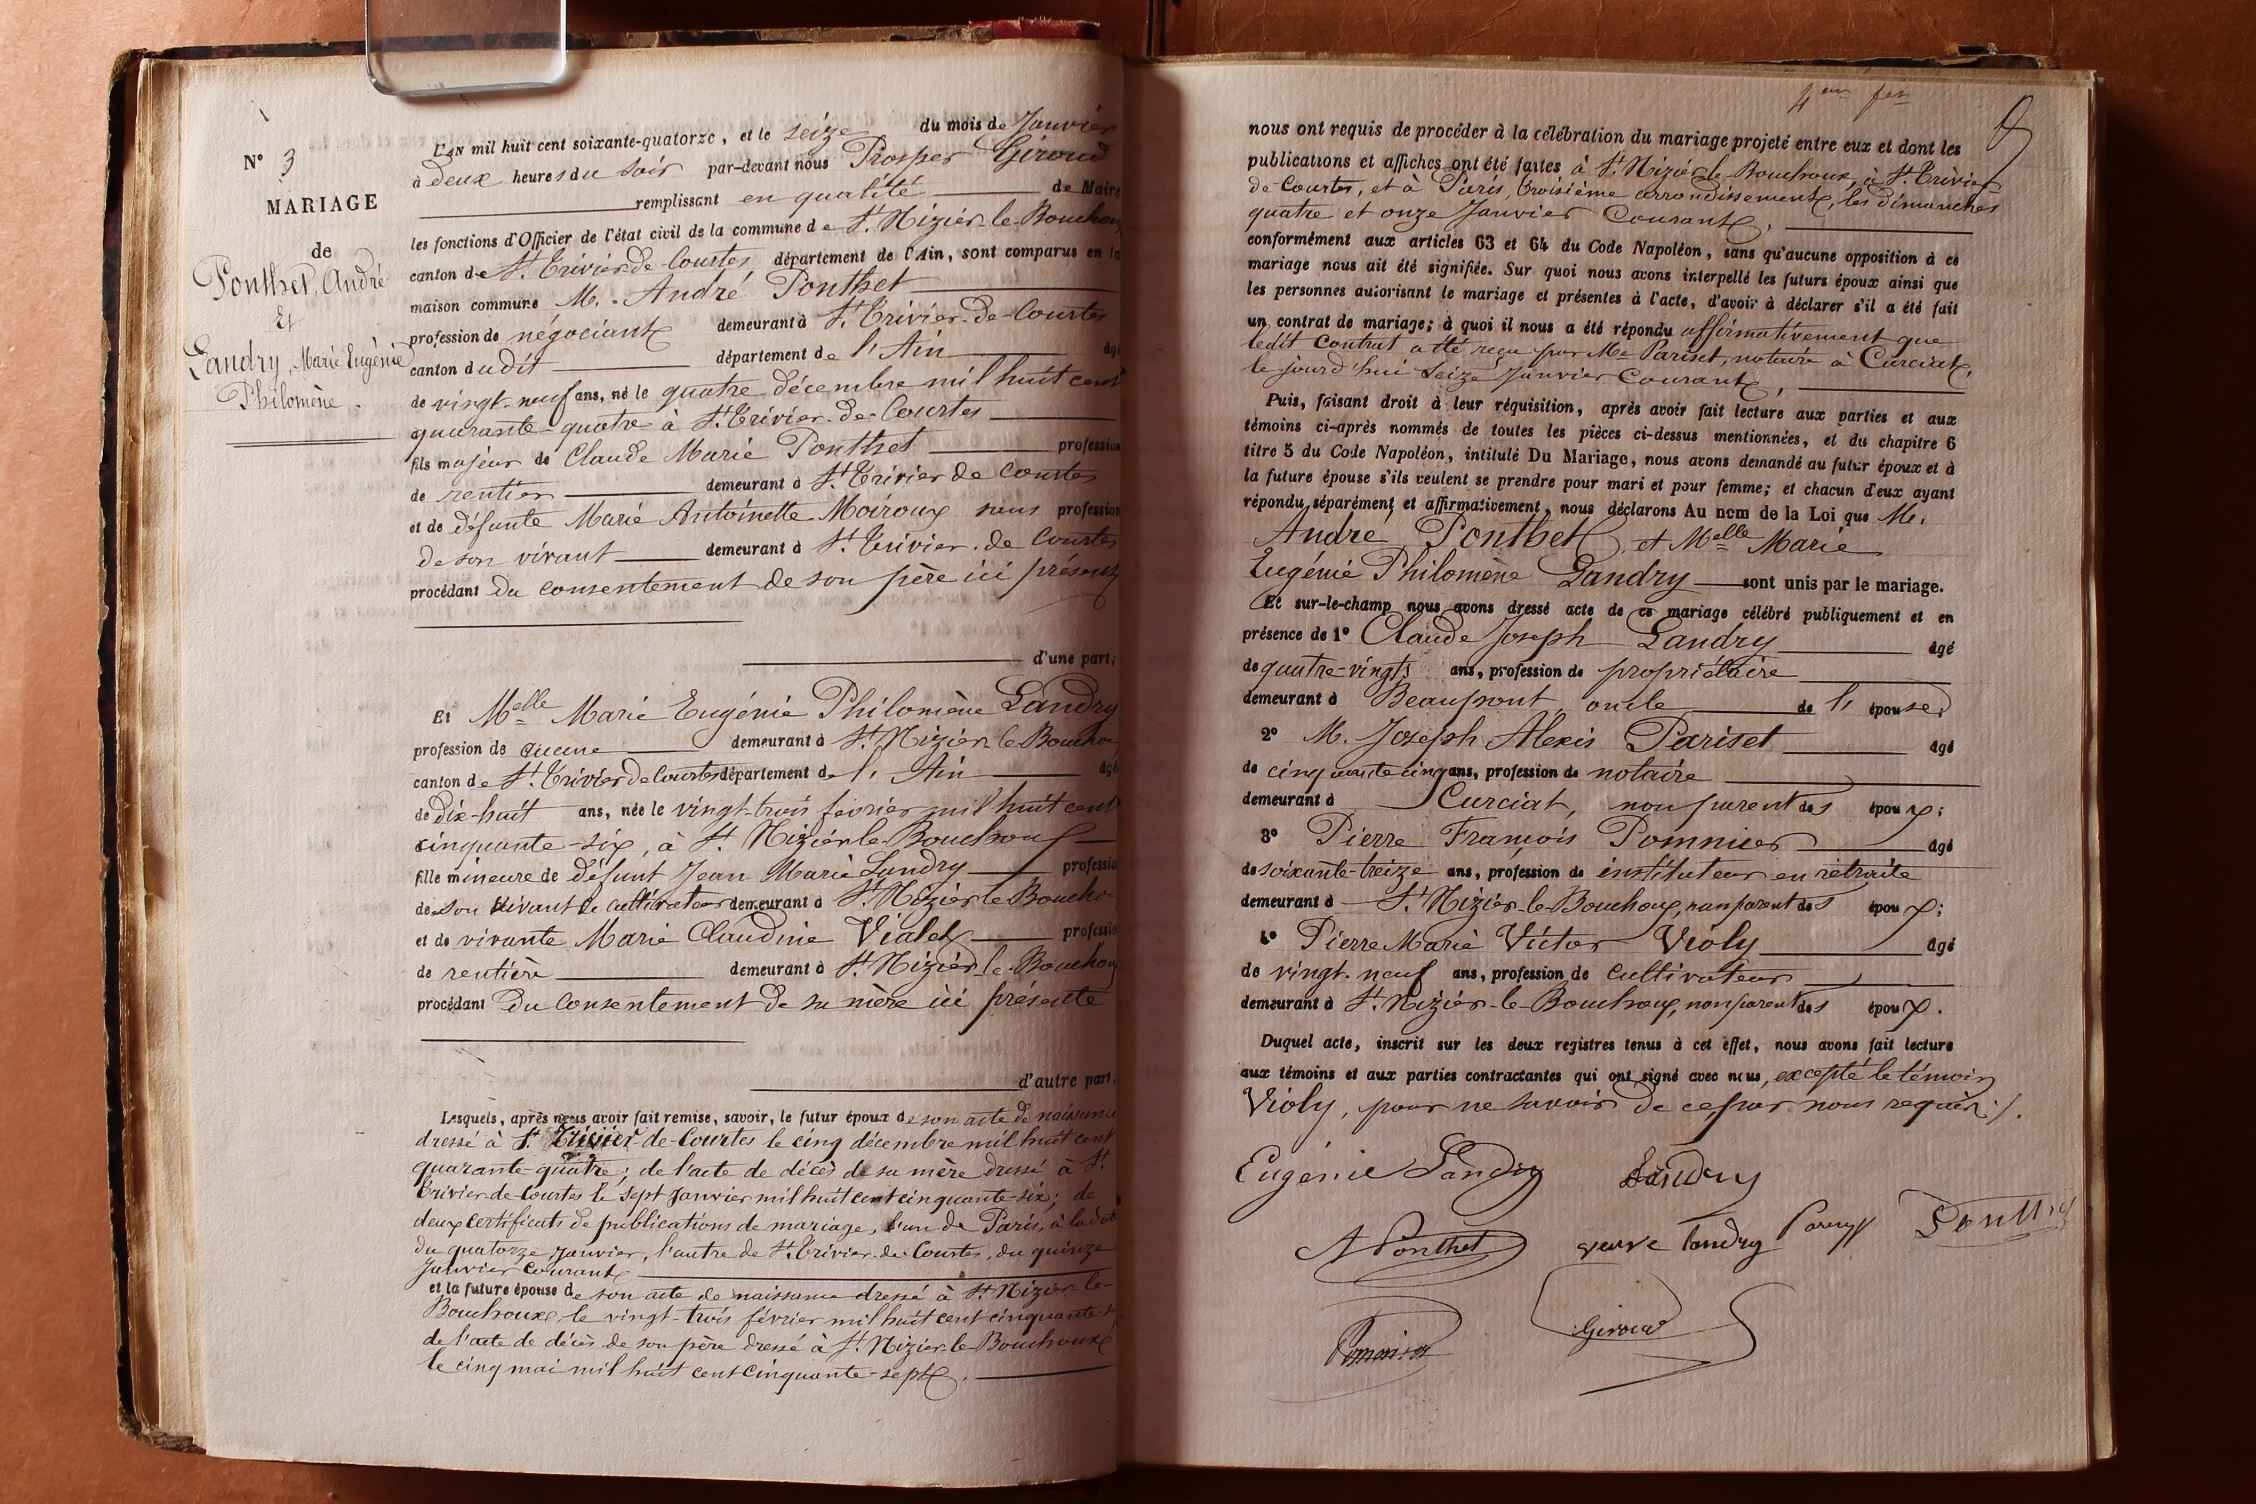 N° 3
MARIAGE
de
Ponthet, André
Et
Landry, Marie Eugénie
Philomène.
L'AN mil huit cent soixante-quatorze, et le seize du mois de Janvier
à deux heures du soir par-devant nous Prosper Giroud
remplissant en qualité de Maire
les fonctions d'Officier de l'état civil de la commune de St. Nizier-le-Bouchoux
canton de St. Trivier de Courtes département de l'Ain, sont comparus en la
maison commune M. André Ponthet
profession de négociant demeurant à St. Trivier-de-Courtes
canton dudit département de l'Ain âgé
de vingt-neuf ans, né le quatre décembre mil huit cent
quarante-quatre à St. Trivier-de-Courtes
fils majeur de Claude Marie Ponthet profession
de rentier demeurant à St. Trivier de Courtes
et de défunte Marie Antoinette Moiroux sans profession
de son vivant demeurant à St. Trivier-de-Courtes
procédant du consentement de son père ici présent
d'une part;
Et Melle Marie Eugénie Philomène Landry
profession de aucune demeurant à St. Nizier-le-Boucho
canton de St. Trivier de Courtes département de l'Ain âgé
de dix-huit ans, née le vingt-trois février mil huit cent
cinquante-six, à St. Nizier-le-Bouchoux
fille mineure de défunt Jean Marie Landry professio
de son vivant de cultivateur demeurant à St. Nizier-le-Boucho-
et de vivante Marie Claudine Vialet professio
de rentière demeurant à St. Nizier-le-Bouchoux
procédant du consentement de sa mère ici présente
d'autre part.
Lesquels, après nous avoir fait remise, savoir, le futur époux de son acte de naissance
dressé à St. Trivier-de-Courtes le cinq décembre mil huit cent
quarante-quatre; de l'acte de décès de sa mère dressé à St.
Trivier-de-Courtes le sept Janvier mil huit cent cinquante-six; de
deux certificats de publications de mariage, l'un de Paris, à la date
du quatorze Janvier, l'autre de St. Trivier-de-Courtes, du quinze
Janvier courant
et la future épouse de son acte de naissance dressé à St. Nizier-le-
Bouchoux, le vingt-trois février mil huit cent cinquante-six
de l'acte de décès de son père dressé à St. Nizier-le-Bouchoux
le cinq mai mil huit cent cinquante-sept.
nous ont requis de procéder à la célébration du mariage projeté entre eux et dont les
publications et affiches ont été faites à St. Nizier-le-Bouchoux, à St. Trivier-
de-Courtes, et à Paris, troisième arrondissement, les dimanches
quatre et onze Janvier courant,
conformément aux articles 63 et 64 du Code Napoléon, sans qu'aucune opposition à ce
mariage nous ait été signifiée. Sur quoi nous avons interpellé les futurs époux ainsi que
les personnes autorisant le mariage et présentes à l'acte, d'avoir à déclarer s'il a été fait
un contrat de mariage; à quoi il nous a été répondu affirmativement que
ledit contrat a été reçu par Me Pariset, notaire à Curciat,
le jourd'hui seize Janvier courant,
Puis, faisant droit à leur réquisition, après avoir fait lecture aux parties et aux
témoins ci-après nommés de toutes les pièces ci-dessus mentionnées, et du chapitre 6
titre 5 du Code Napoléon, intitulé Du Mariage, nous avons demandé au futur époux et à
la future épouse s'ils veulent se prendre pour mari et pour femme; et chacun d'eux ayant
répondu séparément et affirmativement, nous déclarons Au nom de la Loi que M.
André Ponthet, et Melle Marie
Eugénie Philomène Landry sont unis par le mariage.
Et sur-le-champ nous avons dressé acte de ce mariage célébré publiquement et en
présence de 1° Claude Joseph Landry âgé
de quatre-vingts ans, profession de propriétaire
demeurant à Beaupont, oncle de l'épouse;
2° M. Joseph Alexis Pariset âgé
de cinquante cinq ans, profession de notaire
demeurant à Curciat, non parent des époux;
3° Pierre François Pommier âgé
de soixante-treize ans, profession de instituteur en retraite
demeurant à St. Nizier-le-Bouchoux, non parent des époux;
4° Pierre Marie Victor Violy âgé
de vingt-neuf ans, profession de cultivateur
demeurant à St. Nizier-le-Bouchoux, non parent des époux.
Duquel acte, inscrit sur les deux registres tenus à cet effet, nous avons fait lecture
aux témoins et aux parties contractantes qui ont signé avec nous, excepté le témoin
Violy, pour ne savoir de ce par nous requis./.
Eugénie Landry Landry
A Ponthet veuve Landry Ponthet
Pommier Giroud